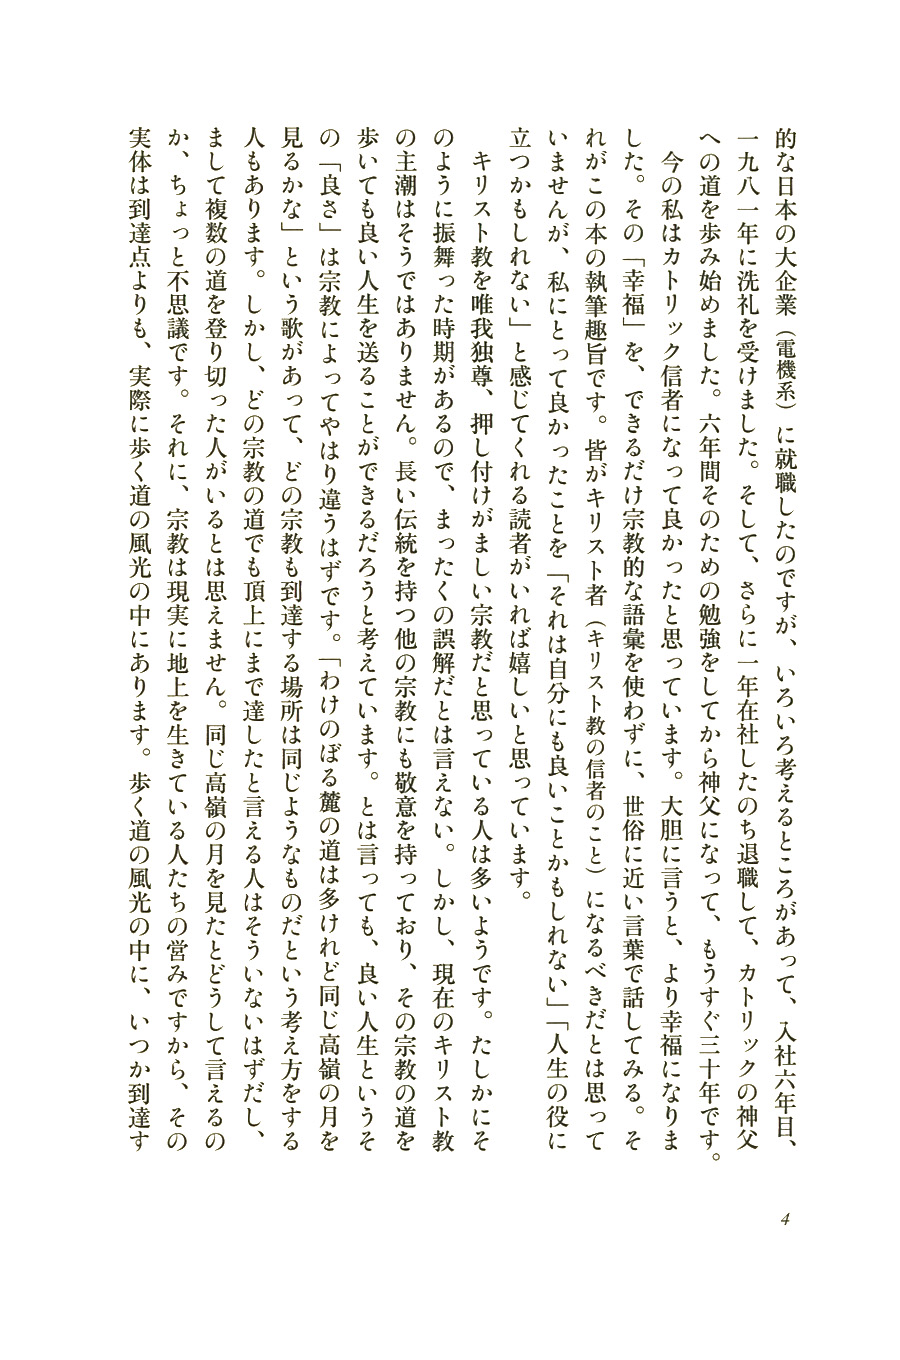 的な日本の大企業（電機系）に就職したのですが、いろいろ考えるところがあって、入社六年目、
一九八一年に洗礼を受けました。そして、さらに一年在社したのち退職して、カトリックの神父
への道を歩み始めました。六年間そのための勉強をしてから神父になって、もうすぐ三十年です。
今の私はカトリック信者になって良かったと思っています。大胆に言うと、より幸福になりま
した。その「幸福」を、できるだけ宗教的な語彙を使わずに、世俗に近い言葉で話してみる。そ
れがこの本の執筆趣旨です。皆がキリスト者（キリスト教の信者のこと）になるべきだとは思って
いませんが、私にとって良かったことを「それは自分にも良いことかもしれない」「人生の役に
立つかもしれない」と感じてくれる読者がいれば嬉しいと思っています。
キリスト教を唯我独尊、押し付けがましい宗教だと思っている人は多いようです。たしかにそ
のように振舞った時期があるので、まったくの誤解だとは言えない。しかし、現在のキリスト教
の主潮はそうではありません。長い伝統を持つ他の宗教にも敬意を持っており、その宗教の道を
歩いても良い人生を送ることができるだろうと考えています。とは言っても、良い人生というそ
の「良さ」は宗教によってやはり違うはずです。「わけのぼる麓の道は多けれど同じ高嶺の月を
見るかな」という歌があって、どの宗教も到達する場所は同じようなものだという考え方をする
人もあります。しかし、どの宗教の道でも頂上にまで達したと言える人はそういないはずだし、
まして複数の道を登り切った人がいるとは思えません。同じ高嶺の月を見たとどうして言えるの
か、ちょっと不思議です。それに、宗教は現実に地上を生きている人たちの営みですから、その
実体は到達点よりも、実際に歩く道の風光の中にあります。歩く道の風光の中に、いつか到達す
4